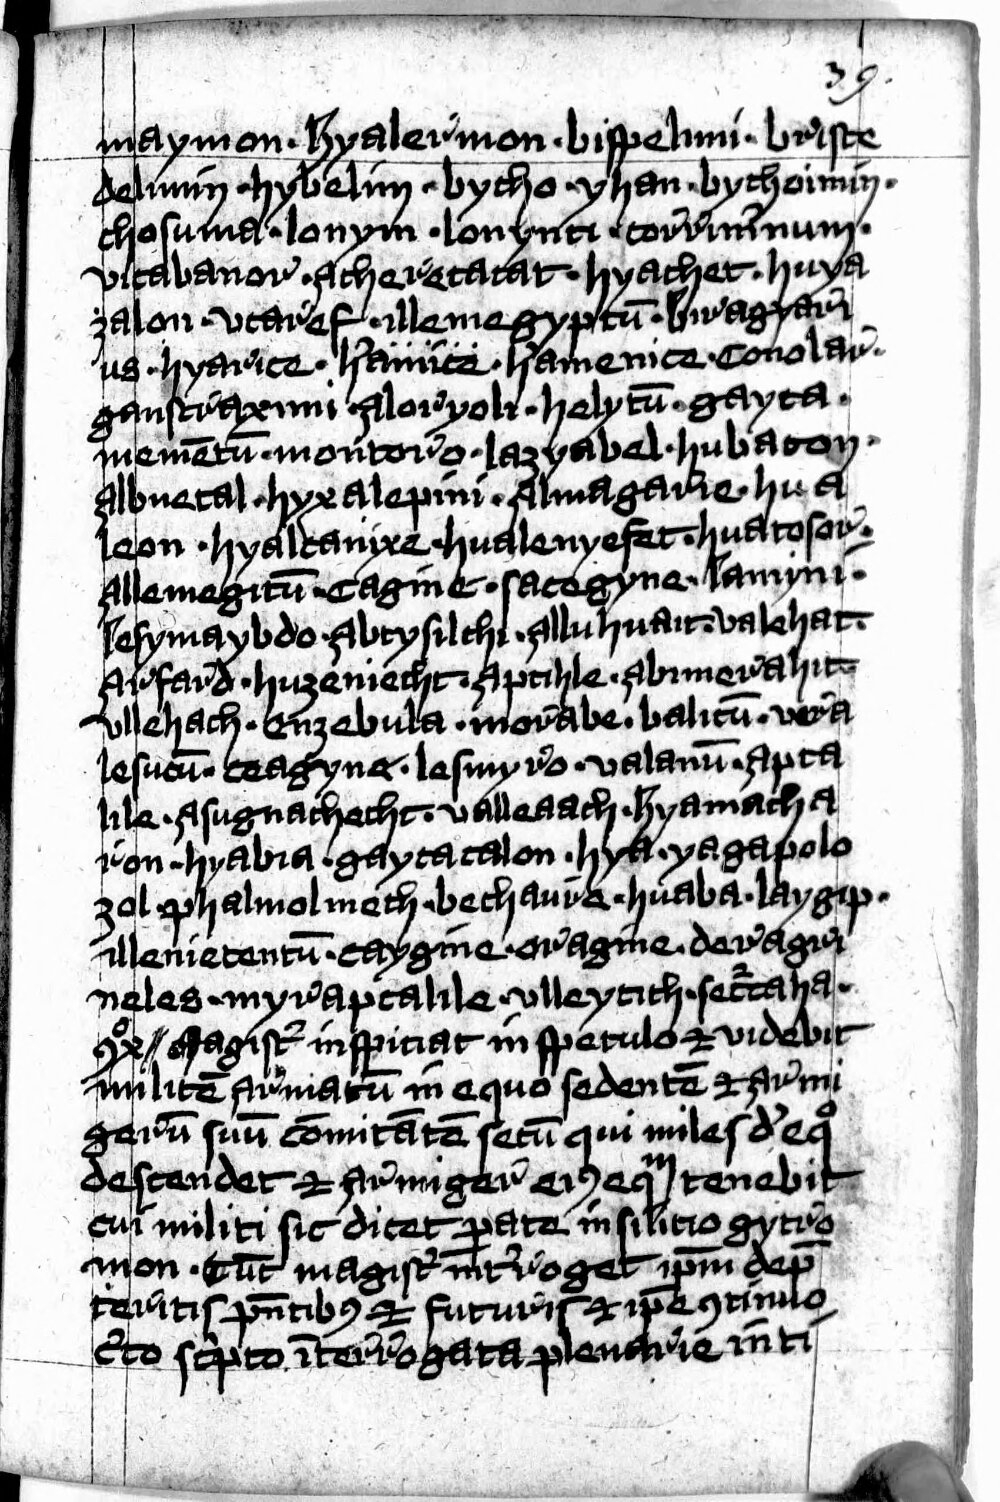 39.
maymon · hyalermon · bisspelimi · briste
delimin · hybelim · bycho · yhan · bychoimin ·
chosuma · lonym · lonynti · corriminum ·
vitabanor · acheretatat · hyachet · huya
zalon · vtaref · illemegyptū · biragyari
us · hyarite · hamite · hamenite · Conolar ·
ganstraximi · aloryoli · helytū · gayta ·
memētū · montoro · lazyabel · hubaton ·
albuetal · hyxalepini · almagarie · hua
leon · hyaltanixe · hualenyefet · huatosor ·
allemegitū · Cagine · sategyne · lamyni ·
lesymaybdo · abtysilchi · alluhuait · valehat ·
arfard · huzeniecht · aptihle · abimerahit
vllehach · Enzebula · morabe · balitū · vera
lesutū · teagyne · lesmyro · valanū · apta
lile · asugnachecht · valleaach · hyamacha
ron · hyabia · gaytatalon · hya · yagapolo
zol · phalmolmech · bechaure · huaba · laygip ·
illenietentū · caygine · oragine · deragiri
neles · myraptalile · vlleytith · sectaha ·
9ͦx // Magistͬ inspiciat in speculo et videbit
militē armatū in equo sedentē et armi
gerū suū comitātē secū qui miles d' eqͦ
descendet et armiger ei9 eqm tenebit
cui militi sic dicet pate in silitio gytro
mon · Tūc magistͬ intͬroget ipm̄ dep̄
teritis pn̄tib9 et futuris et ip̄e 9tinuo
cͬto scͥpto īterrogata plenarie inti